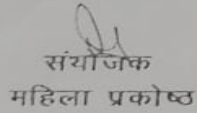 संयोजक
महिला प्रकोष्ठ